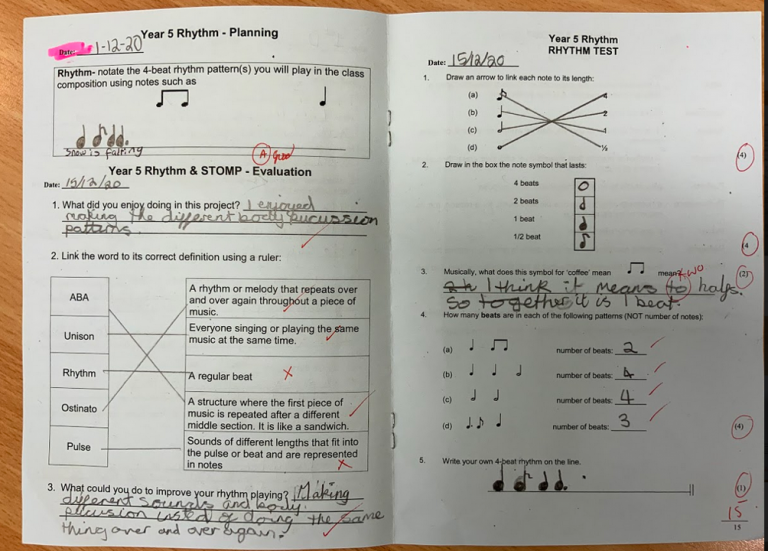 Year 5 Rhythm - Planning
Date: 1-12-20
Rhythm- notate the 4-beat rhythm pattern(s) you will play in the class
composition using notes such as
Snow is falling
A Great
Year 5 Rhythm & STOMP - Evaluation
Date: 15/12/20
1. What did you enjoy doing in this project? I enjoyed
making the different body purcussion
patterns.
2. Link the word to its correct definition using a ruler:
ABA
Unison
Rhythm
Ostinato
Pulse
A rhythm or melody that repeats over
and over again throughout a piece of
music.
Everyone singing or playing the same
music at the same time.
A regular beat
A structure where the first piece of
music is repeated after a different
middle section. It is like a sandwich.
Sounds of different lengths that fit into
the pulse or beat and are represented
in notes
3. What could you do to improve your rhythm playing? Making
different sounds and body
pucussion insted of doing the same
thing over and over again.
Year 5 Rhythm
RHYTHM TEST
Date: 15/12/20
1. Draw an arrow to link each note to its length:
(a) 4
(b) 2
(c) 1
(d) ½
(4)
2. Draw in the box the note symbol that lasts:
4 beats
2 beats
1 beat
1/2 beat
(4
3. Musically, what does this symbol for 'coffee' mean mean? two
(2)
I think it means to halfs.
so together it is 1 beat.
4. How many beats are in each of the following patterns (NOT number of notes):
(a) number of beats: 2
(b) number of beats: 4
(c) number of beats: 4
(d) number of beats: 3
(4)
5. Write your own 4-beat rhythm on the line.
(1)
15
15